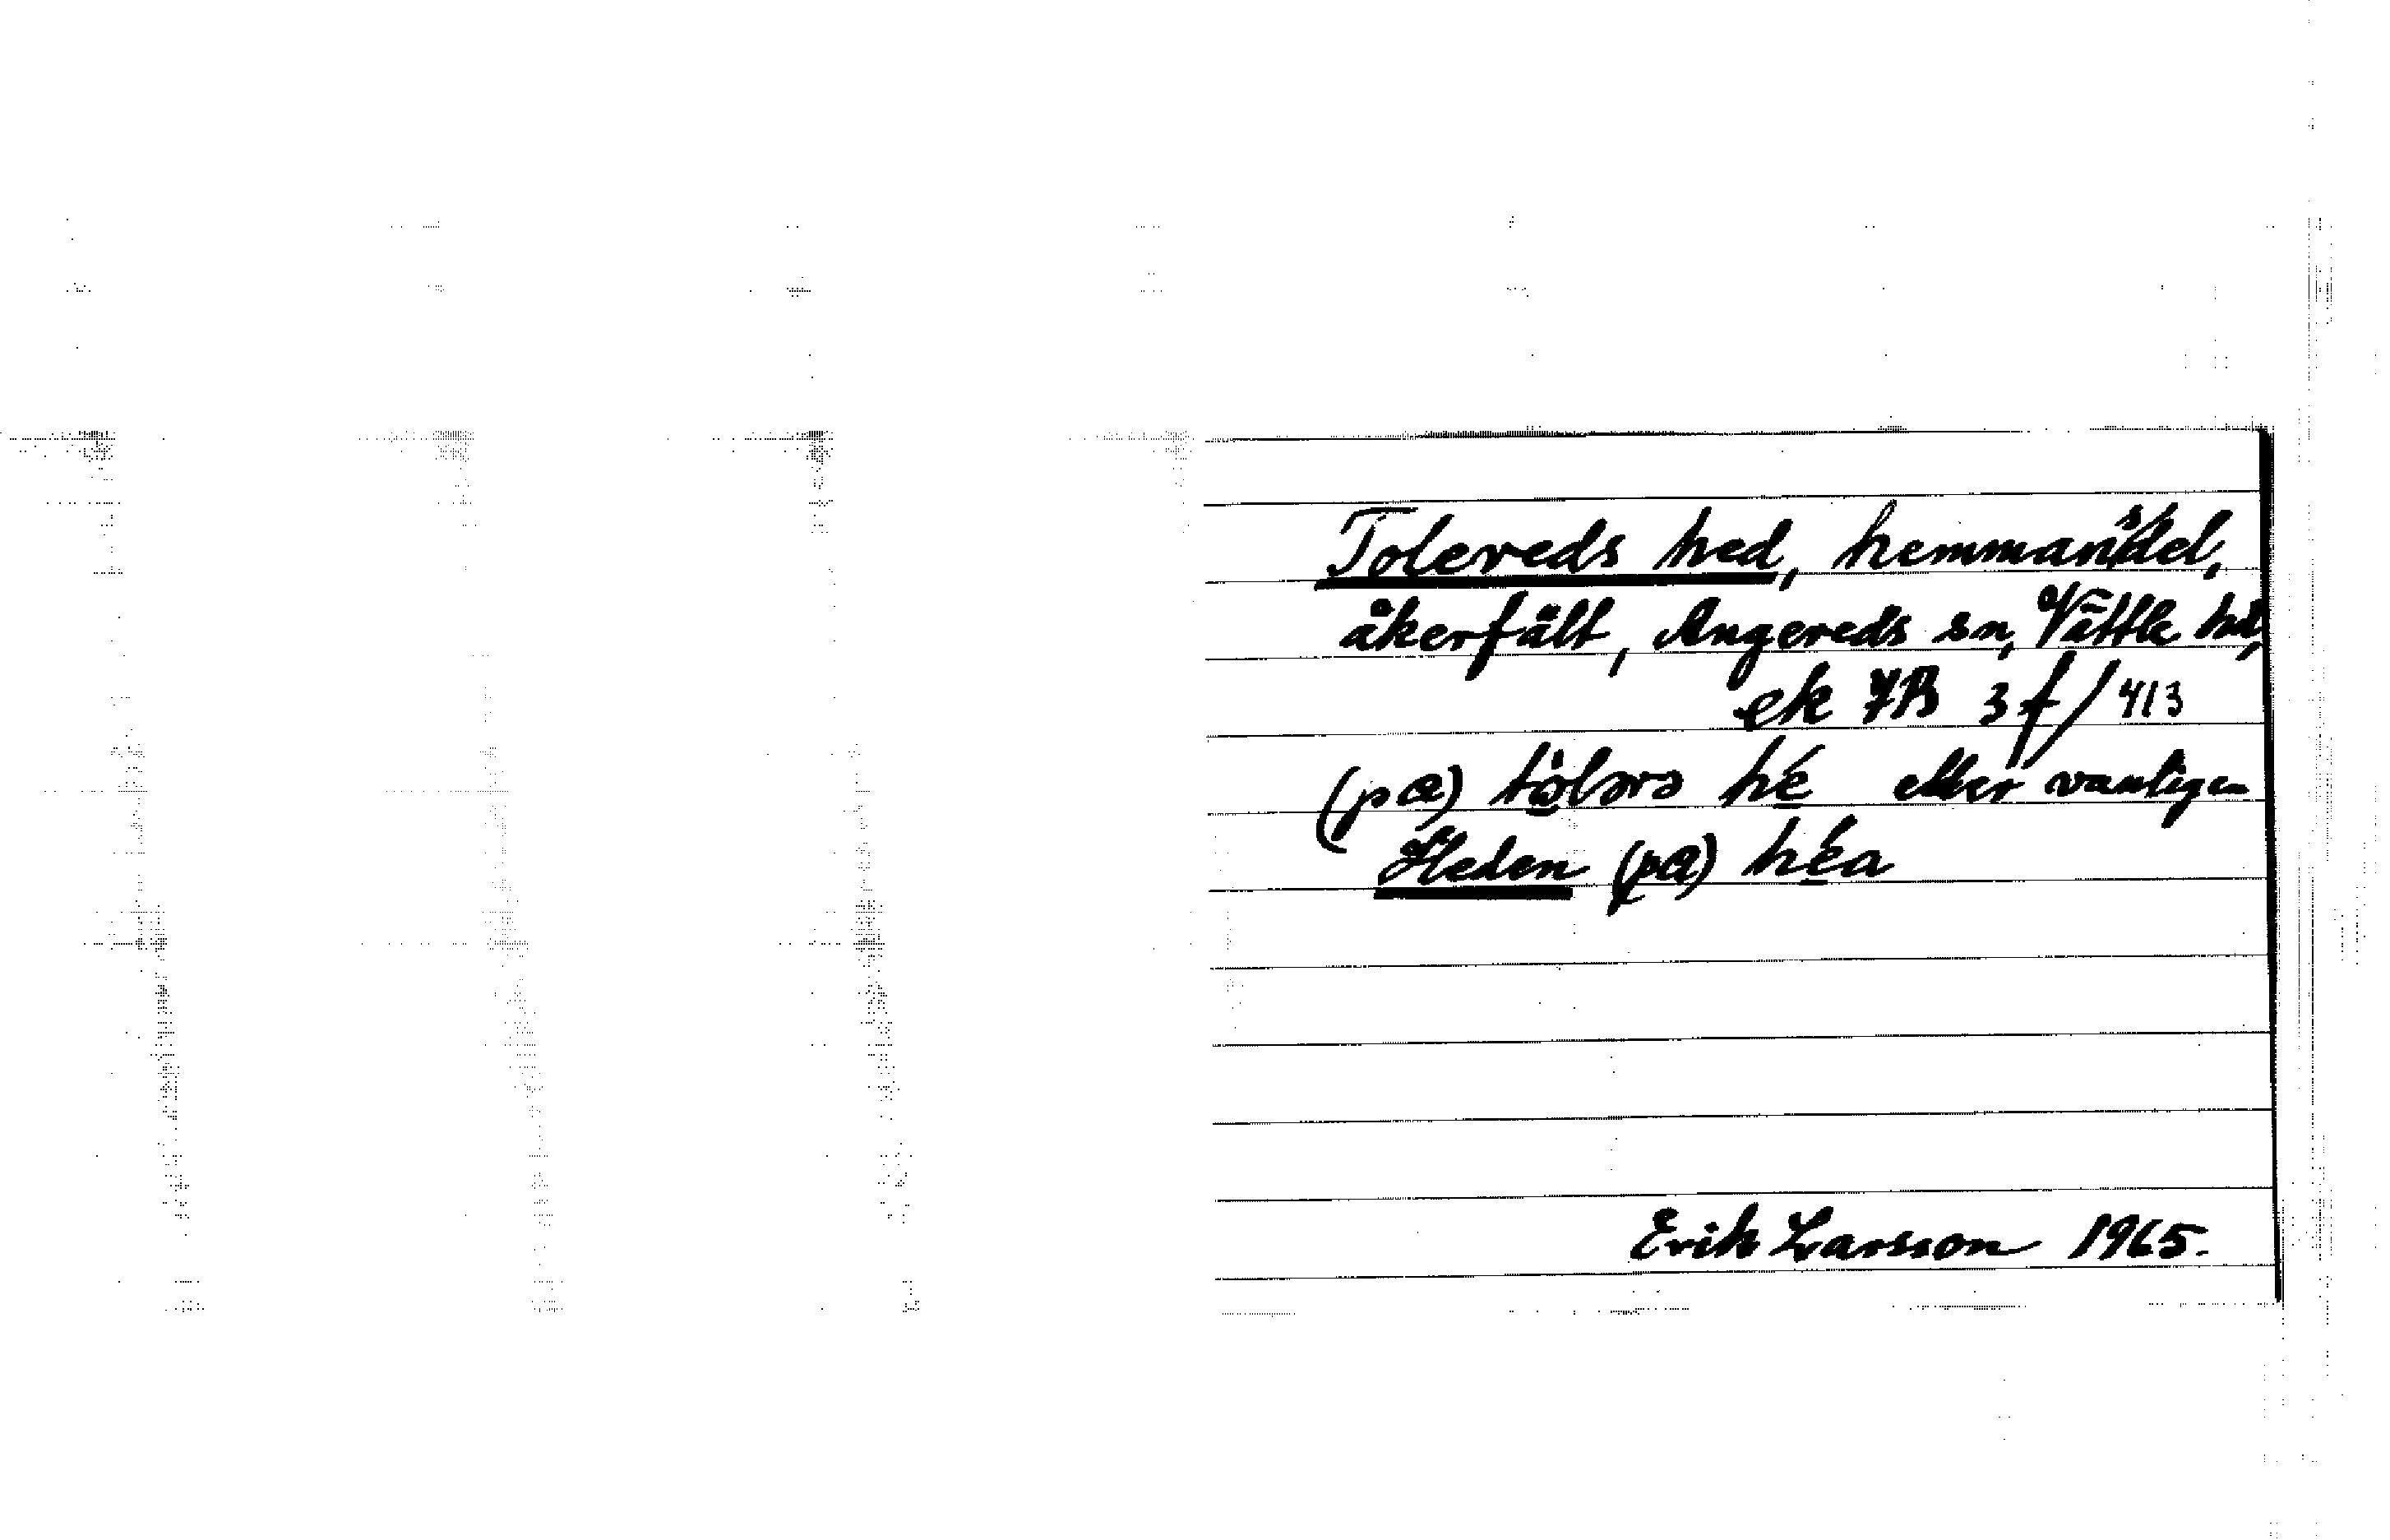 Tolereds hed, hemmansdel,
åkerfält, Angereds sn, Vättle hd,
ek 7B 3f/413
(pɑ) tölərə hé eller vanligen
Heden (pɑ) héa
Erik Larsson 1965.